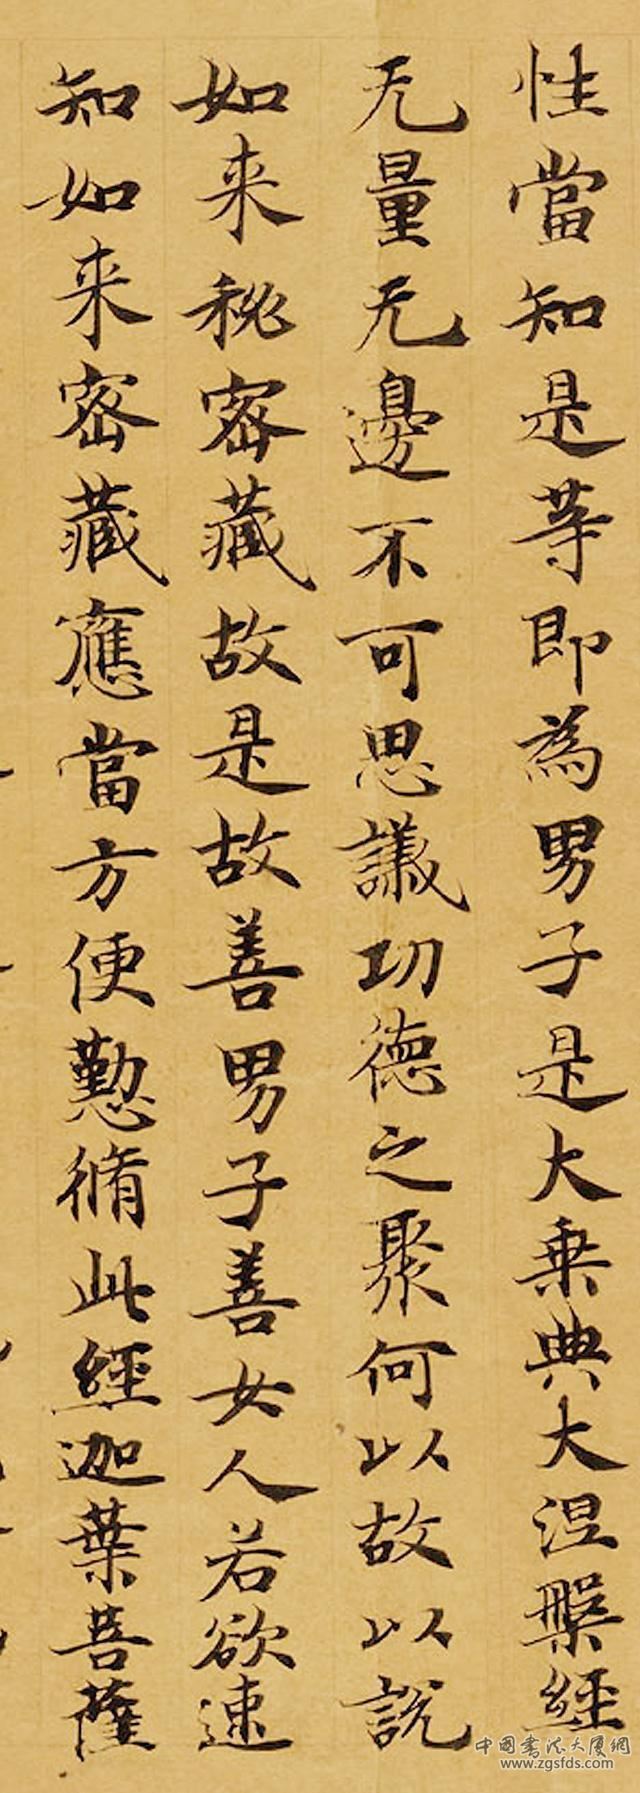 性當知是等即為男子是大乗典大涅槃經
无量无邊不可思議功德之聚何以故以說
如来秘密藏故是故善男子善女人若欲速
知如来密藏應當方便懃脩此經迦葉菩薩
中国书法大厦網
www.zgsfds.com